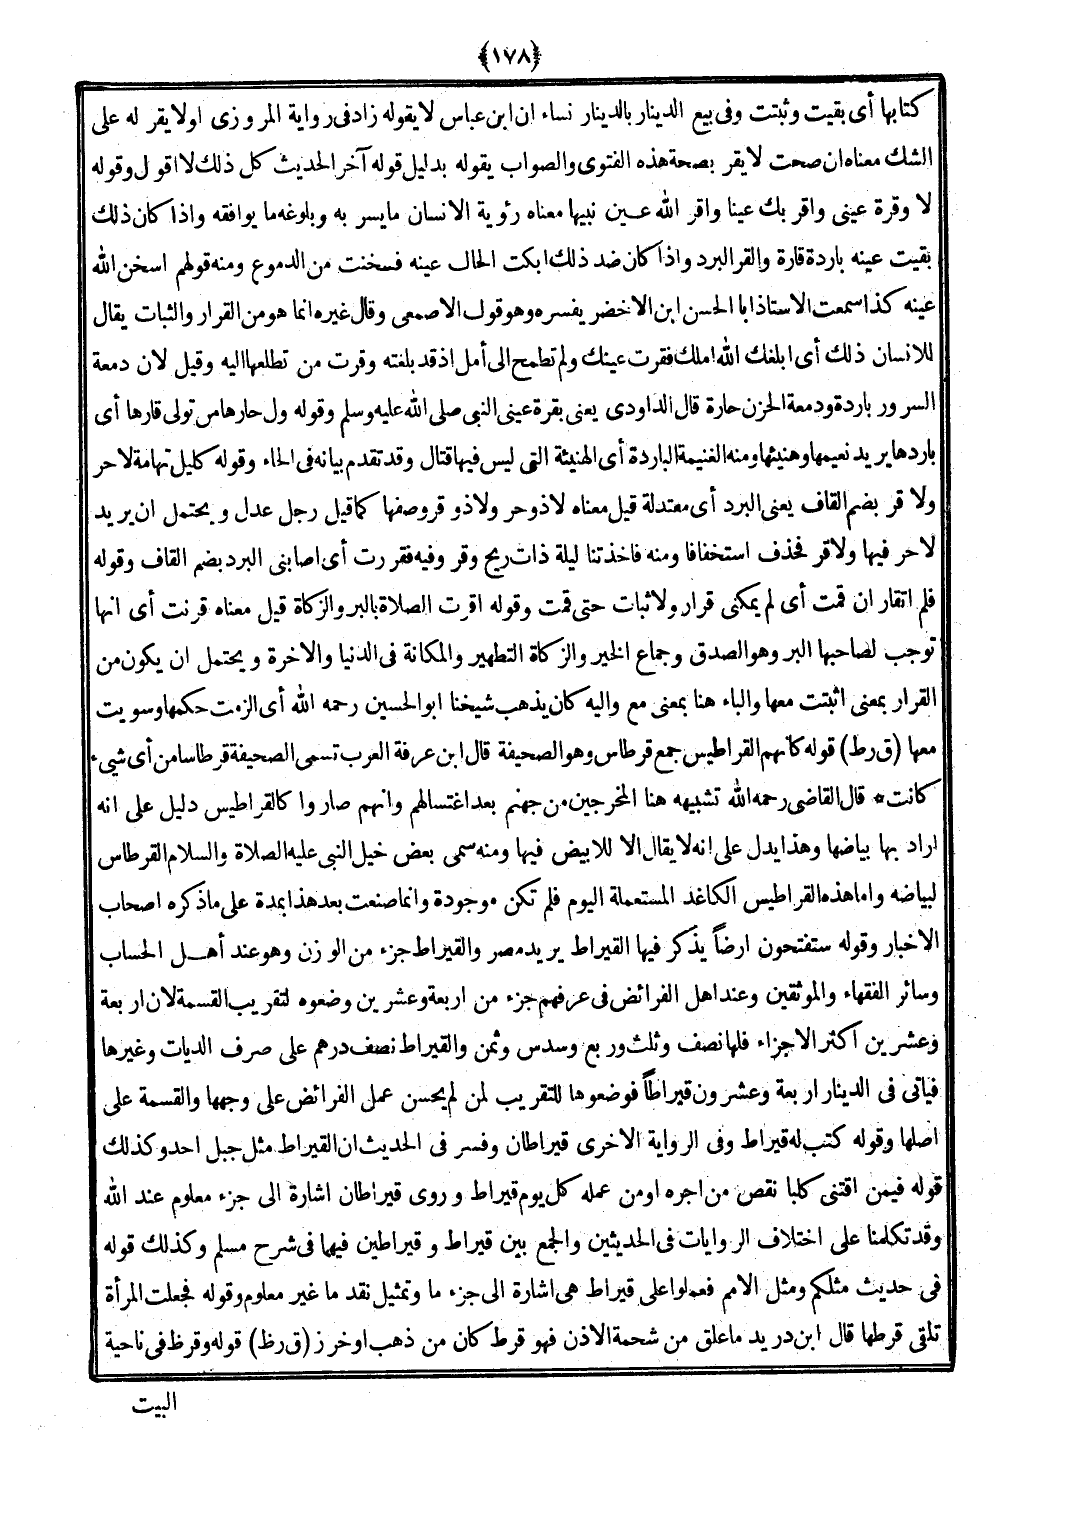 ﴿١٧٨﴾
كتابها أى بقيت وثبتت وفى بيع الدينار بالدينار نساء ان ابن عباس لا يقوله زاد فى رواية المروزى اولا يقر له على
الشك معناه ان صحت لا يقر بصحة هذه الفتوى والصواب يقوله بدليل قوله آخر الحديث كل ذلك لا اقول وقوله
لا وقرة عينى واقر بك عينا واقر الله عين نبيها معناه رؤية الانسان مايسر به وبلوغه ما يوافقه واذا كان ذلك
بقيت عينه باردة قارة والقر البرد واذا كان ضد ذلك ابكت الحال عينه فسخنت من الدموع ومنه قولهم اسخن الله
عينه كذا سمعت الاستاذ ابا الحسن ابن الاخضر يفسره وهو قول الاصمعى وقال غيره انما هو من القرار والثبات يقال
للانسان ذلك أى ابلغك الله املك فقرت عينك ولم تطمح الى أمل اذ قد بلغته وقرت من تطلعها اليه وقيل لان دمعة
السرور باردة ودمعة الحزن حارة قال الداودى يعنى بقرة عينى النبى صلى الله عليه وسلم وقوله ول حارها من تولى قارها أى
باردها يريد نعيمها وهنيئها ومنه الغنيمة الباردة أى الهنيئة التى ليس فيها قتال وقد تقدم بيانه فى الحاء وقوله كليل تهامة لا حر
ولا قر بضم القاف يعنى البرد أى معتدلة قيل معناه لا ذو حر ولا ذو قر وصفها كما قيل رجل عدل ويحتمل ان يريد
لا حر فيها ولا قر فحذف استخفافا ومنه فاخذتنا ليلة ذات ريح وقر وفيه فقررت أى اصابنى البرد بضم القاف وقوله
فلم اتقار ان قمت أى لم يمكنى قرار ولا ثبات حتى قمت وقوله اقرت الصلاة بالبر والزكاة قيل معناه قرنت أى انها
توجب لصاحبها البر وهو الصدق وجماع الخير والزكاة التطهير والمكانة فى الدنيا والاخرة ويحتمل ان يكون من
القرار بمعنى اثبتت معها والباء هنا بمعنى مع واليه كان يذهب شيخنا ابو الحسين رحمه الله أى الزمت حكمها وسويت
معها (ق رط) قوله كأنهم القراطيس جمع قرطاس وهو الصحيفة قال ابن عرفة العرب تسمى الصحيفة قرطاسا من أى شىء
كانت * قال القاضى رحمه الله تشبيهه هنا المخرجين من جهنم بعد اغتسالهم وانهم صاروا كالقراطيس دليل على انه
اراد بها بياضها وهذا يدل على انه لا يقال الا للابيض فيها ومنه سمى بعض خيل النبى عليه الصلاة والسلام القرطاس
لبياضه واما هذه القراطيس الكاغد المستعملة اليوم فلم تكن موجودة وانما صنعت بعد هذا بمدة على ما ذكره اصحاب
الاخبار وقوله ستفتحون ارضاً يذكر فيها القيراط يريد مصر والقيراط جزء من الوزن وهو عند أهل الحساب
وسائر الفقهاء والموثقين وعند اهل الفرائض فى عرفهم جزء من اربعة وعشرين وضعوه لتقريب القسمة لان اربعة
وعشرين اكثر الاجزاء فلها نصف وثلث وربع وسدس وثمن والقيراط نصف درهم على صرف الديات وغيرها
فياتى فى الدينار اربعة وعشرون قيراطاً فوضعوها للتقريب لمن لم يحسن عمل الفرائض على وجهها والقسمة على
اصلها وقوله كتب له قيراط وفى الرواية الاخرى قيراطان وفسر فى الحديث ان القيراط مثل جبل احد وكذلك
قوله فيمن اقتنى كلبا نقص من اجره اومن عمله كل يوم قيراط وروى قيراطان اشارة الى جزء معلوم عند الله
وقد تكلمنا على اختلاف الروايات فى الحديثين والجمع بين قيراط وقيراطين فيهما فى شرح مسلم وكذلك قوله
فى حديث مثلكم ومثل الامم فعملوا على قيراط هى اشارة الى جزء ما وتمثيل نقد ما غير معلوم وقوله فجعلت المرأة
تلقى قرطها قال ابن دريد ما علق من شحمة الاذن فهو قرط كان من ذهب او خرز (ق رظ) قوله وقرظ فى ناحية
البيت